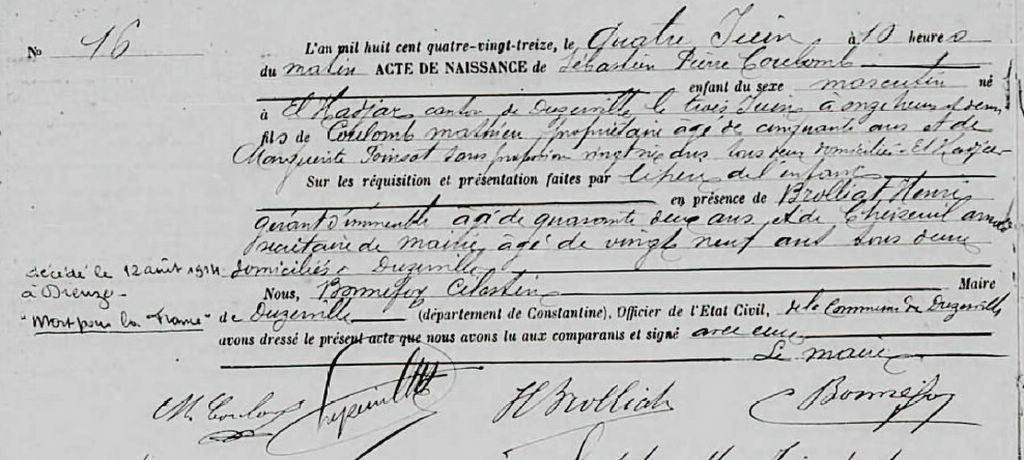 N° 16
L'an mil huit cent quatre-vingt-treize, le Quatre Juin, à 10 heures
du matin ACTE DE NAISSANCE de Sébastien Pierre Coulomb
enfant du sexe masculin né
à El Hadjar canton de Duzerville le trois Juin à onze heures et demi
fils de Coulomb Mathieu propriétaire âgé de cinquante ans et de
Marguerite Poinsot sans profession vingt six ans tous deux domiciliés El Hadjar
Sur les réquisition et présentation faites par le père de l'enfant
en présence de Brolliat Henri
gérant d'immeuble âgé de quarante deux ans et de
Secrétaire de mairie, âgé de vingt neuf ans tous deux
domiciliés à Duzerville
Nous, Bonnefoy Célestin Maire
de Duzerville (département de Constantine), Officier de l'Etat Civil, de la Commune de Duzerville
avons dressé le présent acte que nous avons lu aux comparants et signé avec eux
Le maire
décédé le 12 août 1914
à Dieuze
"Mort pour la France"
M. Coulomb
H Brolliat
Bonnefoy